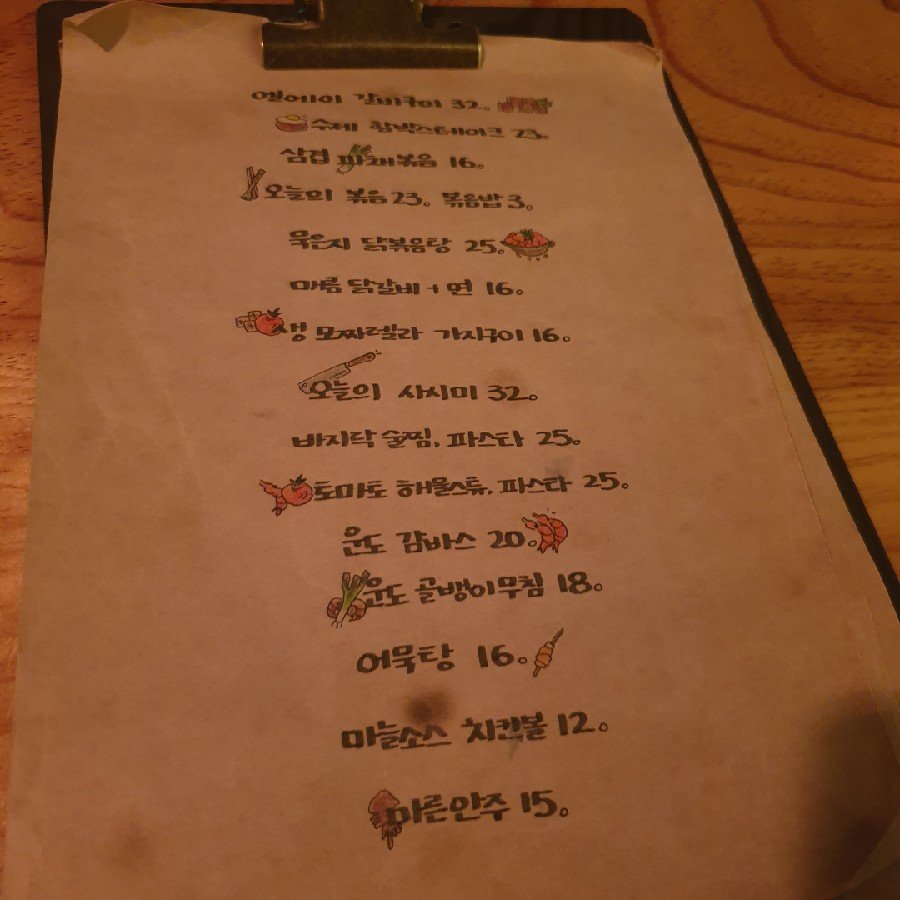 엘에이 갈비구이 32。
수제 함박스테이크 23。
삼겹 파채볶음 16。
오늘의 볶음 23。 볶음밥 3。
묵은지 닭볶음탕 25。
매콤 닭갈비 + 면 16。
생 모짜렐라 가지구이 16。
오늘의 사시미 32。
바지락 술찜, 파스타 25。
토마토 해물스튜, 파스타 25。
윤도 감바스 20。
윤도 골뱅이무침 18。
어묵탕 16。
마늘소스 치킨볼 12。
마른안주 15。